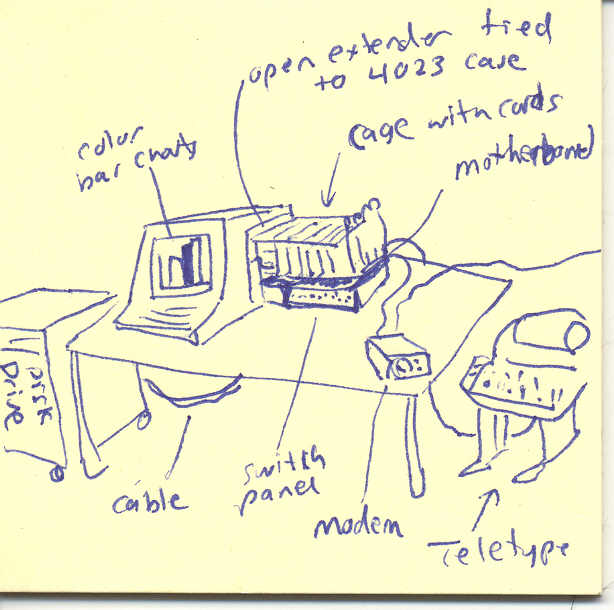 open extender tied
to 4023 case
cage with cards
motherboard
color
bar charts
Disk
Drive
cable
switch
panel
modem
Teletype